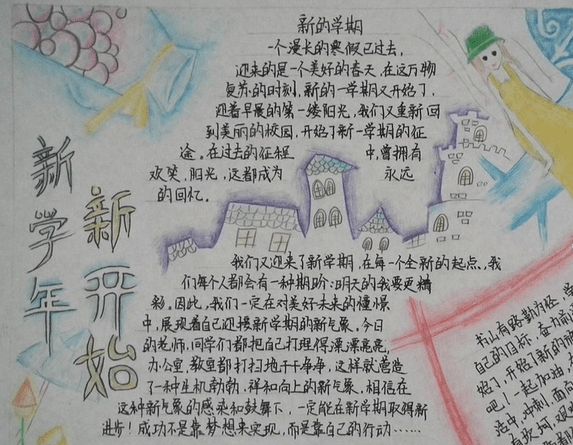 新学年
新开始
新的学期
一个漫长的寒假已过去,
迎来的是一个美好的春天,在这万物
复苏的时刻,新的一学期又开始了,
迎着早晨的第一缕阳光,我们又重新回
到美丽的校园,开始了新一学期的征
途。在过去的征程中,曾拥有
欢笑,阳光,这都成为永远
的回忆。
我们又迎来了新学期,在每一个全新的起点,我
们每个人都会有一种期盼:明天的我要更精
彩。因此,我们一定在对美好未来的憧憬
中,展现着自己迎接新学期的新气象。今日
的老师,同学们都把自己打理得漂漂亮亮,
办公室,教室都打扫地干干净净,这样就营造
了一种生机勃勃,祥和向上的新气象。相信在
这种新气象的感染和鼓舞下,一定能在新学期取得新
进步!成功不是靠梦想来实现,而是靠自己的行动……
书山有路勤为径,学
自己的目标,奋力前
始了,开始了新的
吧!一起加油,